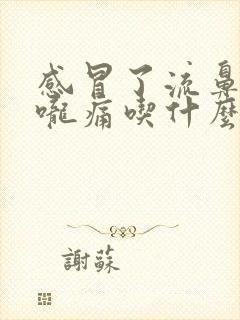 感冒了流鼻
嚨痛喫什麼
謝蘇